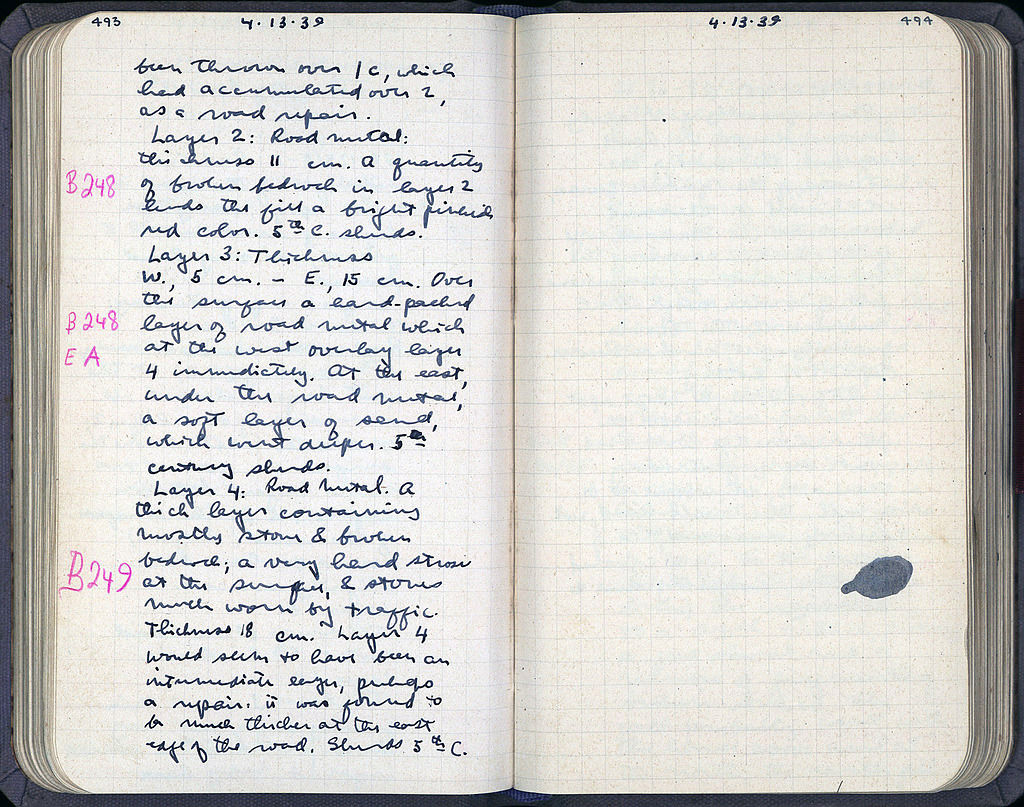 493
4·13·39
been thrown over 1c, which
had accumulated over 2,
as a road repair.
Layer 2: Road metal:
thickness 11 cm. A quantity
B248
of broken bedrock in layer 2
lends the fill a bright pinkish
red color. 5th C. sherds.
Layer 3: Thickness
W., 5 cm. – E., 15 cm. Over
the surface a hard-packed
B248
layer of road metal which
E A
at the west overlay layer
4 immediately. At the east,
under the road metal,
a soft layer of sand,
which went deeper. 5th
century sherds.
Layer 4: Road metal. A
thick layer containing
mostly stone & broken
B249
bedrock; a very hard
at the surface, & stones
much worn by traffic.
Thickness 18 cm. Layer 4
would seem to have been an
intermediate layer, perhaps
a repair. it was found to
be much thicker at the east
edge of the road. Sherds 5th C.
4·13·39
494